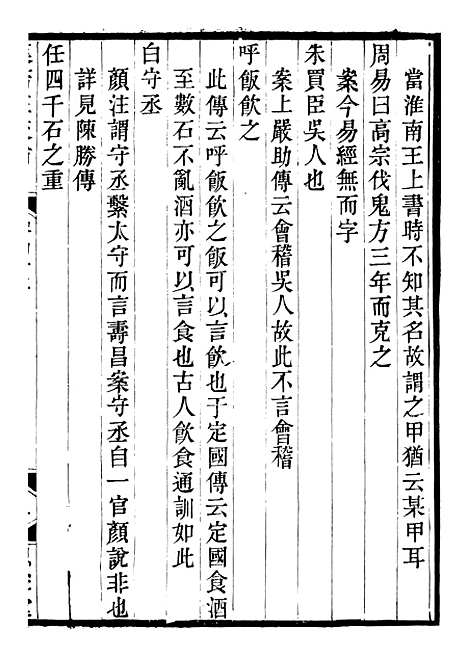 當淮南王上書時不知其名故謂之甲猶云某甲耳
周易曰高宗伐鬼方三年而克之
案今易經無而字
朱買臣吳人也
案上嚴助傳云會稽吳人故此不言會稽
呼飯飲之
此傳云呼飯飲之飯可以言飲也于定國傳云定國食酒
至數石不亂酒亦可以言食也古人飲食通訓如此
白守丞
顏注謂守丞繫太守而言壽昌案守丞自一官顏說非也
詳見陳勝傳
任四千石之重